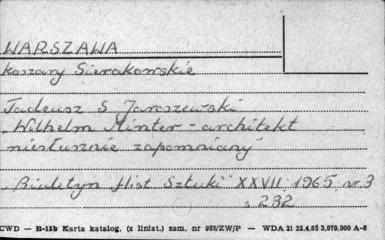 WARSZAWA
koszary Sierakowskie
Tadeusz S Jaroszewski
„Wilhelm Minter - architekt
niesłusznie zapomniany"
„Biuletyn Hist Sztuki" XXVII 1965 nr 3
s 232
CWD — B-15b Karta katalog. (z liniat.) zam. nr 957/ZW/P — WDA 21 22.4.65 3.070.000 A-6